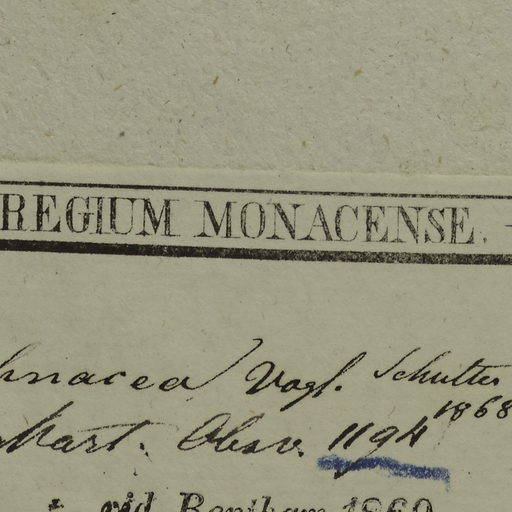 REGIUM MONACENSE.
hnacea Vogl. Schultes
1868
Mart. Obsv. 1194
vid. Bentham 1869